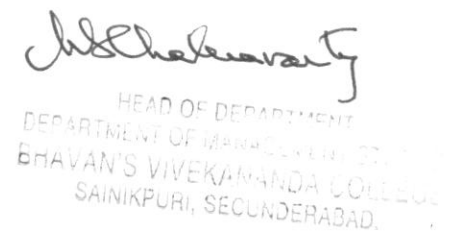 HEAD OF DEPARTMENT
DEPARTMENT OF MANAGEMENT
BHAVAN'S VIVEKANANDA COLLEGE
SAINIKPURI, SECUNDERABAD.